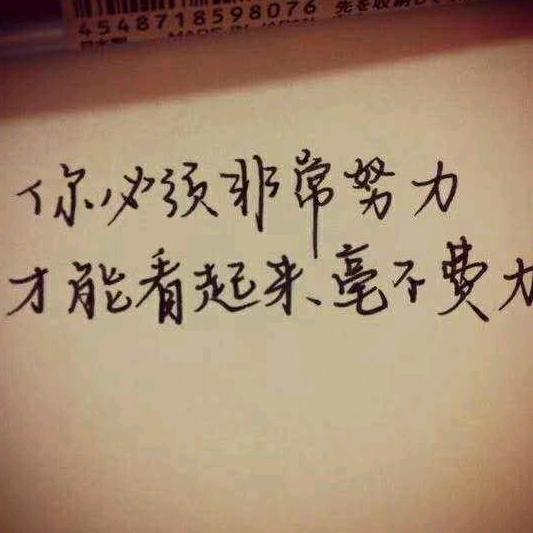 4548718598076 先を収
MADE IN JAPAN
你必须非常努力
才能看起来、毫不费力